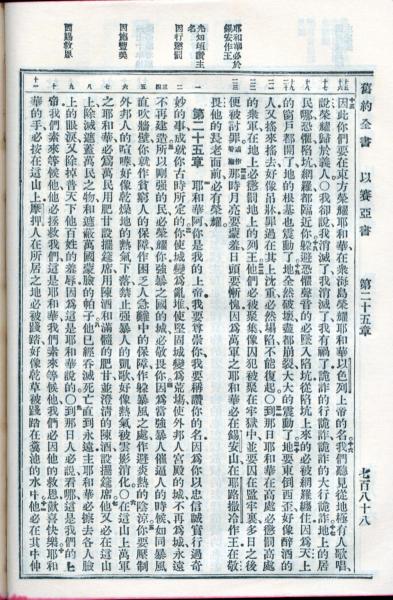 舊約全書 以賽亞書 第二十五章 七百八十八
耶和華必於
錫安作王
先知頌讚主
名
因行懲罰
因賜救恩
因此你們要在東方榮耀耶和華在衆海島榮耀耶和華以色列上帝的名我們聽見從地極有人歌唱
說榮耀歸於義人○我卻說我消滅了我消滅了我有禍了詭詐的行詭詐詭詐的大行詭詐地上的居
民哪恐懼陷坑網羅都臨近你躲避恐懼聲音的必墜入陷坑從陷坑上來的必被網羅纏住因爲天上
的窗戶都開了地的根基也震動了地全然破壞盡都崩裂大大的震動了地要東倒西歪好像醉酒的
人又搖來搖去好像吊牀罪過在其上沈重必然塌陷不能復起○到那日耶和華在高處必懲罰高處
的衆軍在地上必懲罰地上的列王他們必被聚集像囚犯被聚在牢獄中並要囚在監牢裏多日之後
便被討罪那時月亮要蒙羞日頭要慚愧因爲萬軍之耶和華必在錫安山在耶路撒冷作王在敬
畏他的長老面前必有榮耀
第二十五章 耶和華阿你是我的上帝我要尊崇你我要稱讚你的名因爲你以忠信誠實行過奇
妙的事成就你古時所定的你使城變爲亂堆使堅固城變爲荒場使外邦人宮殿的城不再爲城永遠
不再建造所以剛強的民必榮耀你強暴之國的城必敬畏你因爲當強暴人催逼人的時候如同暴風
直吹牆壁你就作貧窮人的保障作困乏人急難中的保障作躲暴風之處作避炎熱的陰涼你要壓制
外邦人的喧嘩好像乾燥地的熱氣下落禁止強暴人的凱歌好像熱氣被雲影消化○在這山上萬軍
之耶和華必爲萬民用肥甘設擺筵席用陳酒和滿髓的肥甘並澄清的陳酒設擺筵席他又必在這山
上除滅遮蓋萬民之物和遮蔽萬國蒙臉的帕子他已經吞滅死亡直到永遠主耶和華必擦去各人臉
上的眼淚又除掉普天下他百姓的羞辱因爲這是耶和華說的○到那日人必說看哪這是我們的上
帝我們素來等候他他必拯救我們這是耶和華我們素來等候他我們必因他的救恩歡喜快樂耶和
華的手必按在這山上摩押人在所居之地必被踐踏好像乾草被踐踏在糞池的水中他必在其中伸